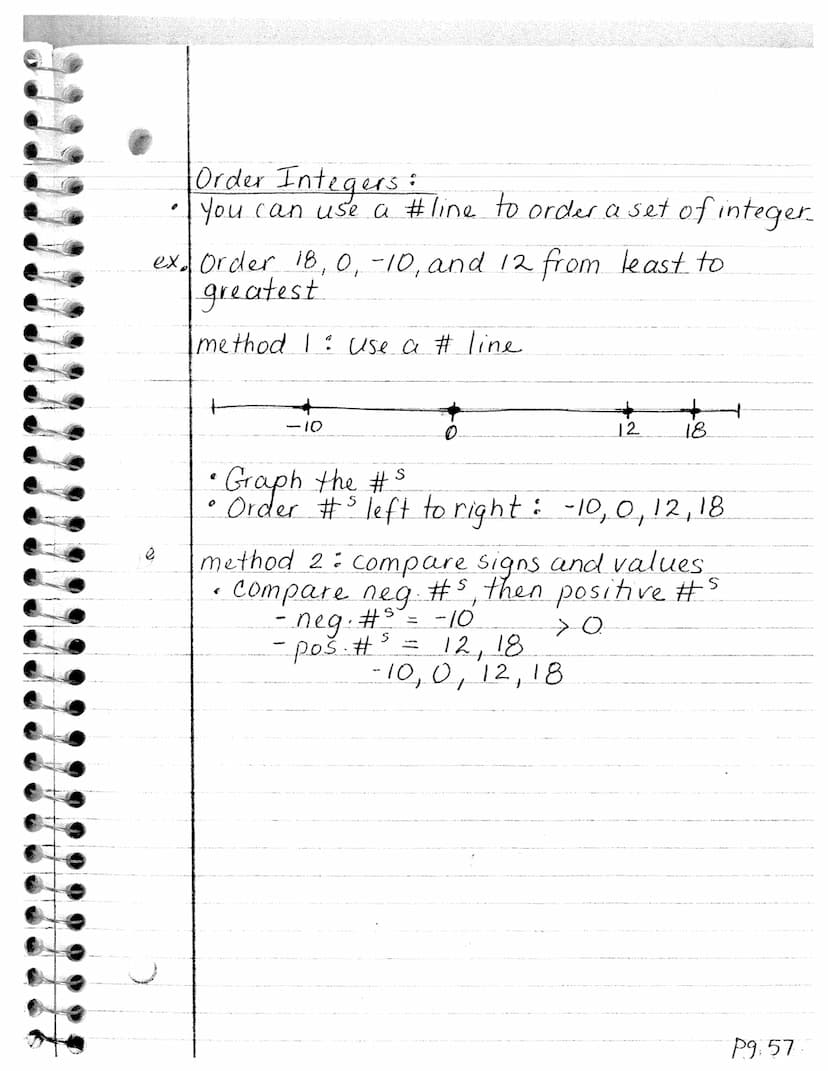 Order Integers:
• You can use a #line to order a set of integer
ex. Order 18, 0, -10, and 12 from least to
greatest
method 1: use a # line
-10 0 12 18
• Graph the #s
• Order #s left to right: -10, 0, 12, 18
e method 2: compare signs and values
• compare neg. #s, then positive #s
- neg. #s = -10 > 0
- pos. #s = 12, 18
-10, 0, 12, 18
Pg. 57